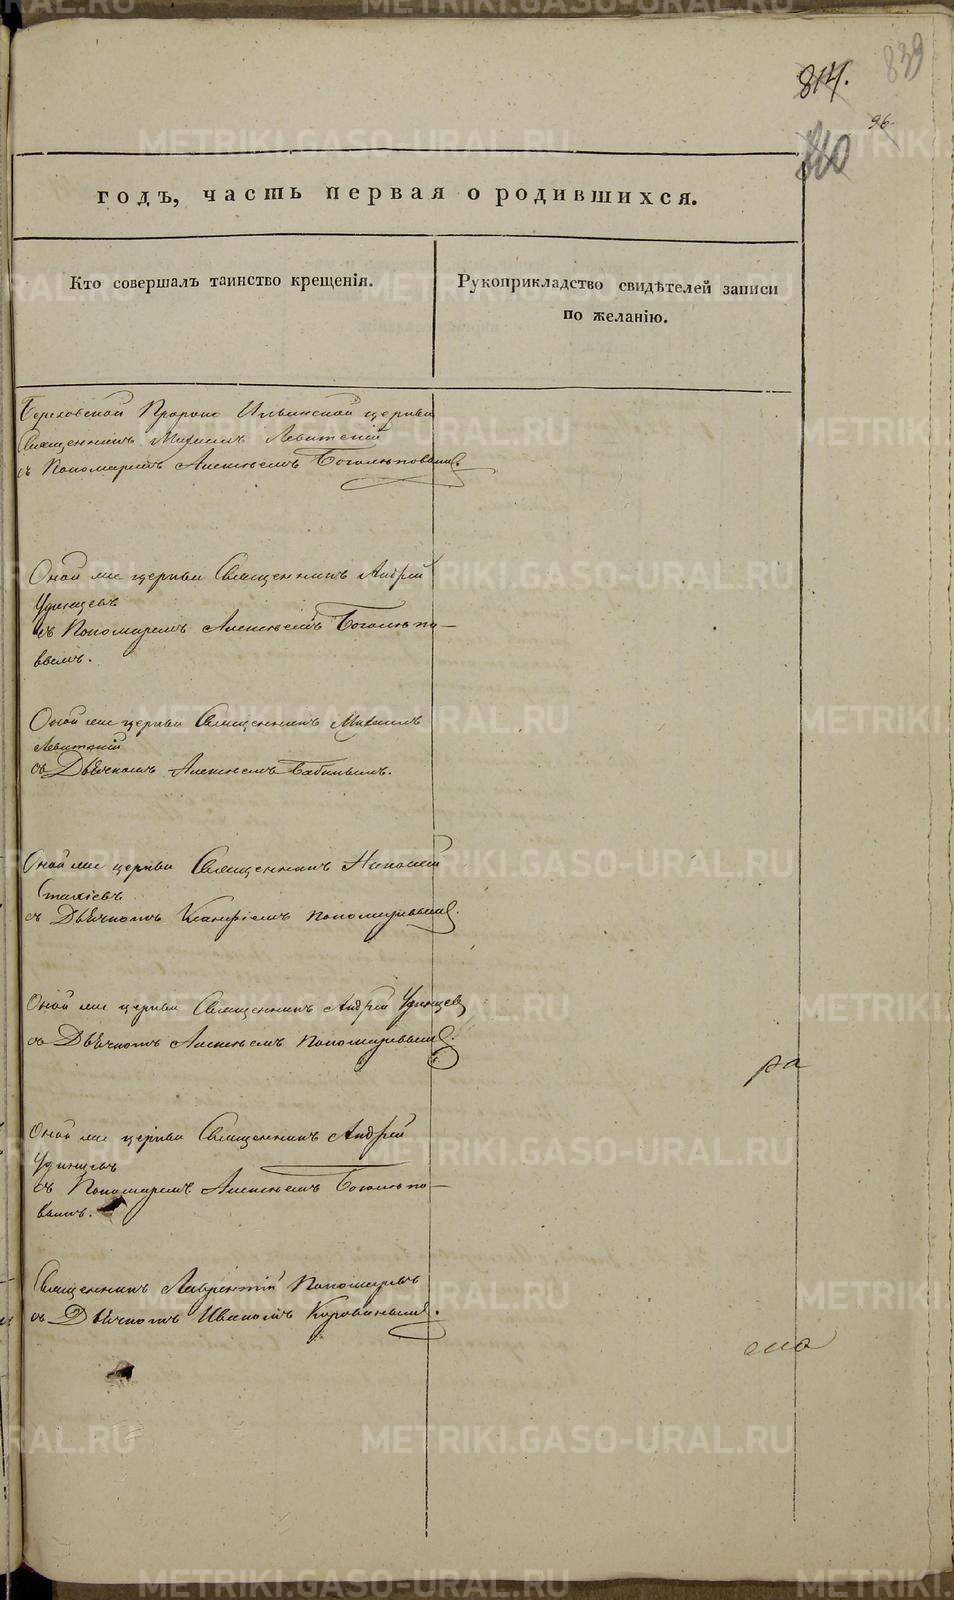 839
814.
96
840
годъ, часть первая о родившихся.
Кто совершалъ таинство крещенія.
Рукоприкладство свидѣтелей записи
по желанію.
Пророко Ильинской церкви
Священникъ Михаилъ Левитскій
съ Пономаремъ Алексѣемъ Боголѣповымъ.
Оной же церкви Священникъ Андрей
Удинцевъ
съ Пономаремъ Алексѣемъ Боголѣпо-
вымъ.
Оной же церкви Священникъ Михаилъ
Левитскій
съ Дьячкомъ Алексѣемъ Бабинымъ.
Оной же церкви Священникъ Николай
Стахіевъ
съ Дьячкомъ Ксанфіемъ Пономаревымъ.
Оной же церкви Священникъ Андрей Удинцевъ
съ Дьячкомъ Алексѣемъ Пономаревымъ.
ра
Оной же церкви Священникъ Андрей
Удинцевъ
съ Пономаремъ Алексѣемъ Боголѣпо-
вымъ.
Священникъ Лаврентій Пономаревъ
съ Дьячкомъ Иваномъ Коровинымъ.
METRIKI.GASO-URAL.RU